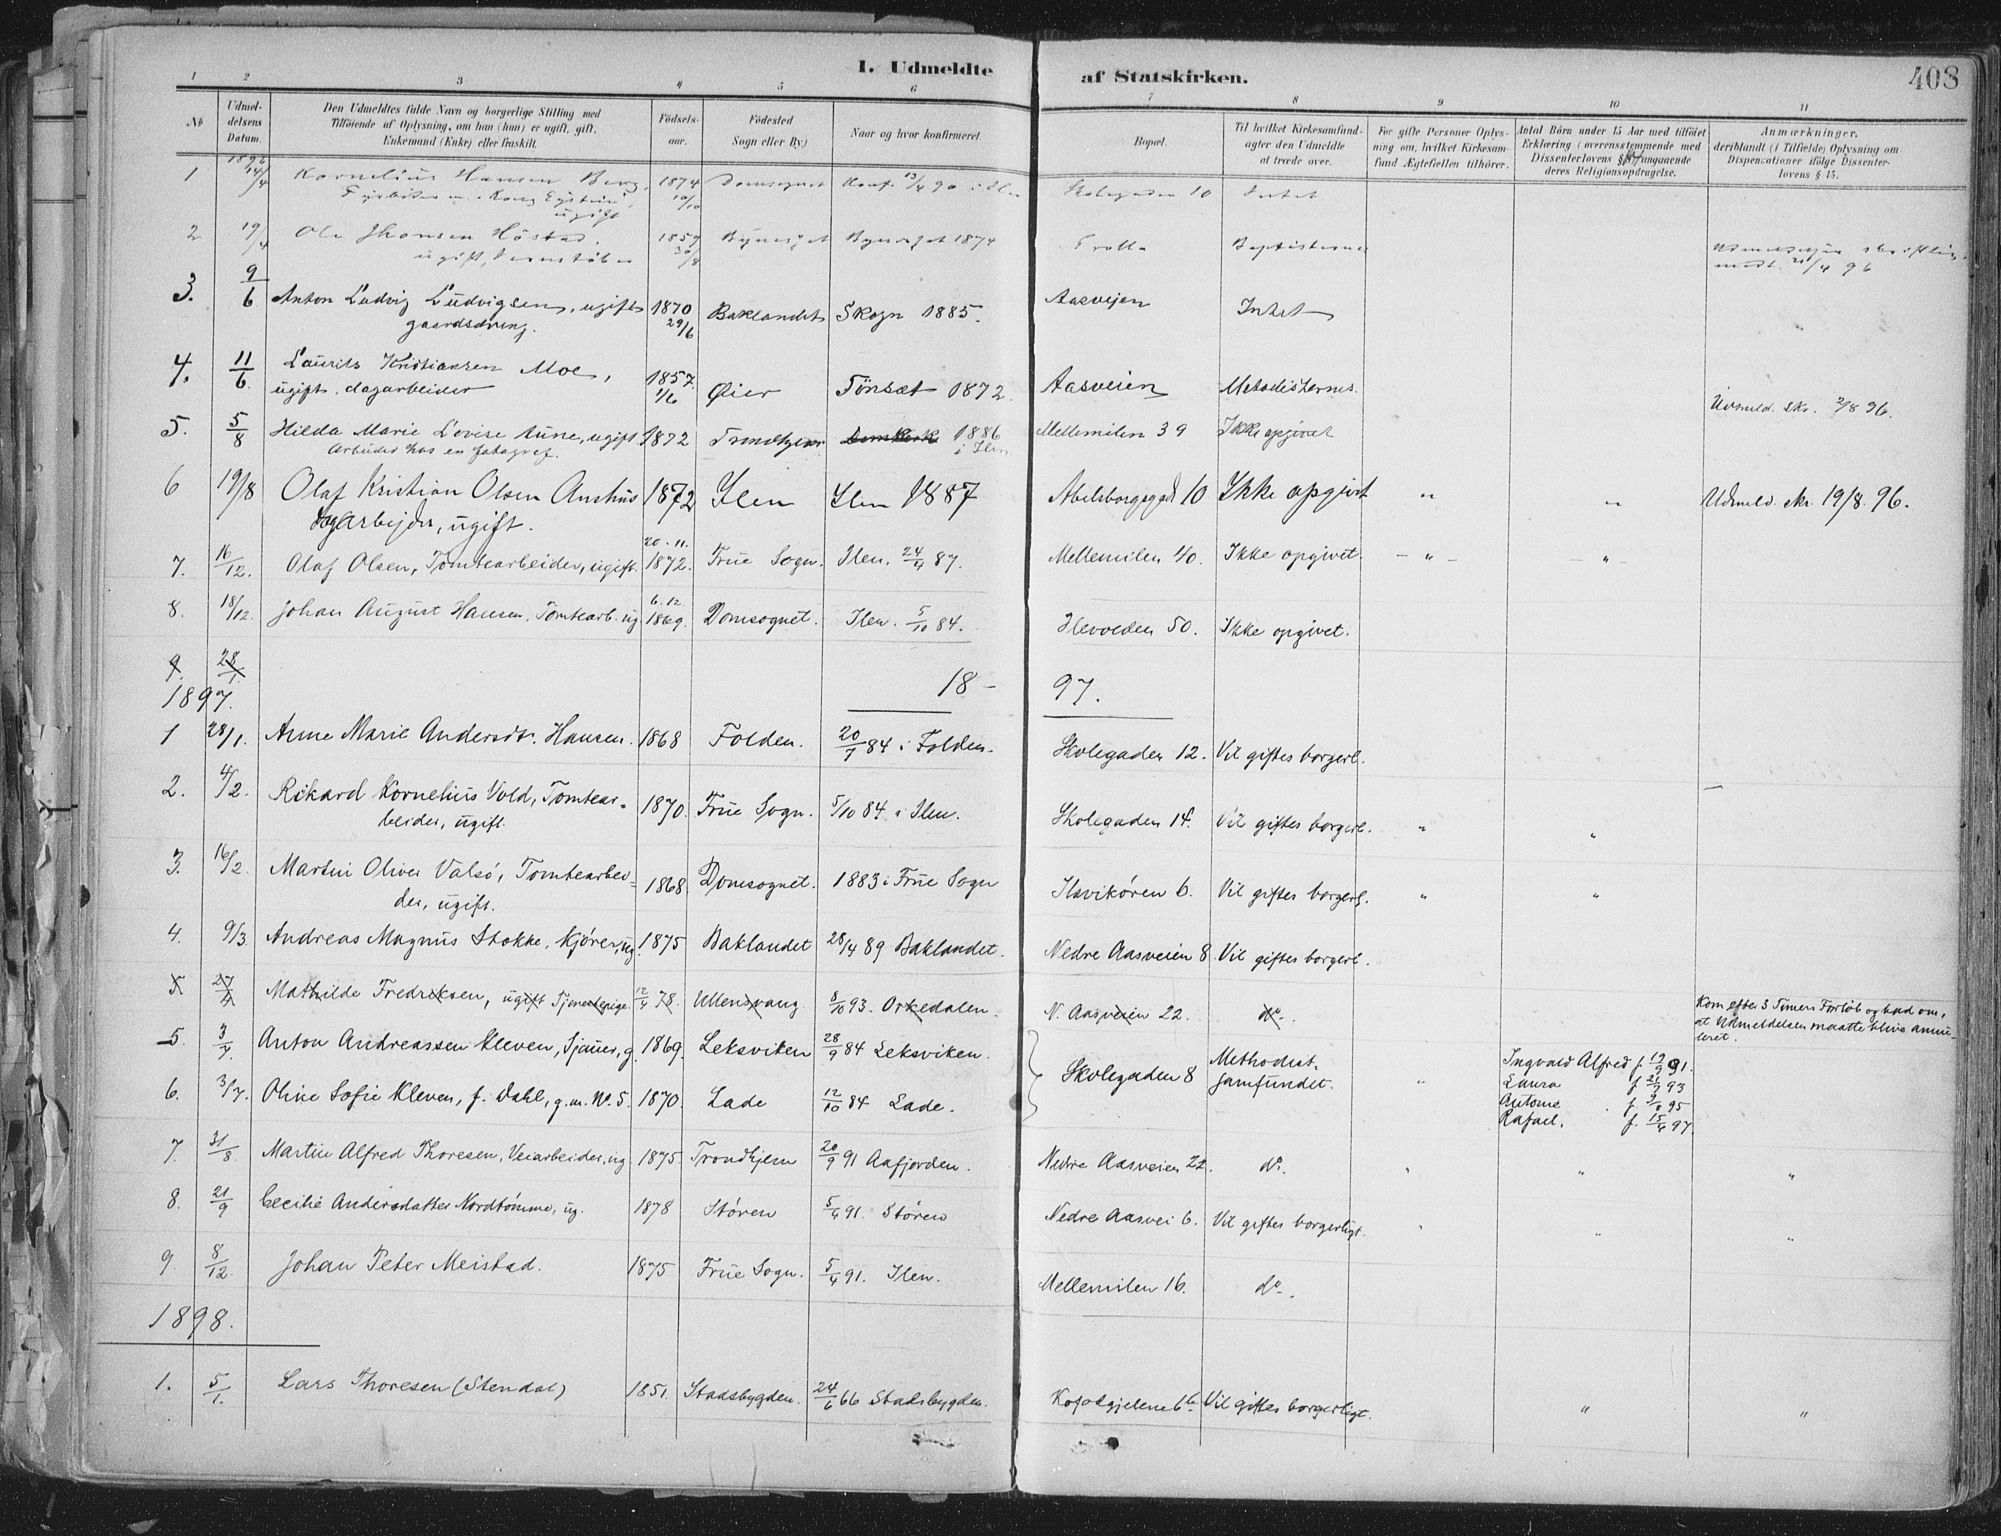 I. Udmeldte af Statskirken.
403
1 2 3 4 5 6 7 8 9 10 11
No
Udmel-
delsens
Datum.
Den Udmeldtes fulde Navn og borgerlige Stilling med
Tilføiende af Oplysning, om han (hun) er ugift, gift,
Enkemand (Enke) eller fraskilt.
Fødsels-
aar.
Fødested
Sogn eller By.)
Naar og hvor konfirmeret.
Bopæl.
Til hvilket Kirkesamfund-
agter den Udmeldte
at træde over.
For gifte Personer Oplys-
ning om, hvilket Kirkesam-
fund Ægtefællen tilhører.
Antal Børn under 15 Aar med tilføiet
Erklæring i overensstemmende med
Dissenterlovens § angaaende
deres Religionsopdragelse.
Anmærkninger,
deriblandt (i Tilfælde) Oplysning om
Dispensationer ifølge Dissenter-
lovens § 15.
1896
1 14/4 Kornelius Hansen Berg, 1874 Domsognet Konf. 13/4 90 i Ilen Skolegaden 10 Intet
Fyrbøder m. "Kong Eystein", 10/10
ugift
2 19/4 Ole Jhonsen Høstad. 1859 Bynesset Bynesset 1874 Trolla Baptisterne
ugift, 30/8
21/4 96
3. 9/6 Anton Ludvig Ludvigsen, ugift 1870 Baklandet Skogn 1885. Aasveien Intet
gaardsdreng. 29/6
4. 11/6 Laurits Kristiansen Moe, 1857. Øier Tönset 1872. Aasveien Metodisternes.
ugift, dagarbeider 1/6
5. 5/8 Hilda Marie Lovise Aune, ugift 1872 Trondhjem Domkirk 1886 Mellemilen 39 Ikke opgivet Udmeld. Skr. 2/8 96.
Arbeider hos en fotograf. i Ilen
6 19/8 Olaf Kristian Olsen Aushus 1872 Ilen Ilen 1887 Abelsborggd 10 Ikke opgivet " " Udmeld. Skr. 19/8. 96.
Dagarbejder, ugift.
7. 16/12. Olaf Olsen, Tomtearbeider, ugift. 20.11. 1872. Frue Sogn. Ilen. 24/4 87. Mellemilen 40. Ikke opgivet. - " - - " -
8. 18/12. Johan August Hansen, Tomtearb. ug 6.12. 1869. Domsognet. Ilen. 5/10 84. Ilevolden 50. Ikke opgivet.
9. 28/1.
1897. 18 - 97.
1 28/1. Anne Marie Andersdt. Hansen. 1868 Folden. 20/7 84 i Folden. Skolegaden 12. Vil giftes borgerl.
2. 4/2. Rikard Kornelius Vold, Tomtear- 1870. Frue Sogn. 5/10 84. i Ilen. Skolegaden 14. Vil giftes borgerl. " "
beider, ugift.
3. 16/2 Martin Oliver Valsö, Tomtearbei- 1868. Domsognet. 1883 i Frue Sogn Ilsvikören 6. Vil giftes borgerl. " "
der, ugift.
4. 9/3. Andreas Magnus Stokke, Kjörer, ug. 1875 Baklandet 28/4 89 Baklandet. Nedre Aasveien 8. Vil giftes borgerl.
5 27/4 Mathilde Fredriksen, ugift Tjenestepige. 12/4 78. Ullensvang 8/10 93. Orkedalen. N. Aasveien 22. do.
Kom efter 3 Timers Forløb og bad om,
at Udmeldelsen maatte blive annul-
leret.
5. 3/7 Anton Andreassen Kleven, Sjauer, g. 1869. Leksviken 28/9 84 Leksviken. Skolegaden 8 Methodist-
samfundet. Ingvald Alfred f. 19/9 91.
6. 3/7. Oline Sofie Kleven, f. Dahl, g. m. No. 5. 1870. Lade 12/10 84 Lade. " Laura f. 21/7 93
Antone f. 9/8 95
Rafael. f. 15/4 97.
7. 31/8. Martin Alfred Thoresen, Veiarbeider, ug. 1875 Trondhjem 20/9 91 Aafjorden. Nedre Aasveien 22. do. " " "
8. 21/9 Cecilie Andersdatter Nordtömme, ug. 1878 Stören 5/4 91. Stören Nedre Aasvei 6. Vil giftes borgerligt. " " "
9. 8/12. Johan Peter Meistad. 1875 Frue Sogn. 5/4 91. Ilen. Mellemilen 16. do.
1898.
1. 5/1. Lars Thoresen (Stendal) 1851. Stadsbygden. 24/6 66 Stadsbygden. 16 Vil giftes borgerligt. " "